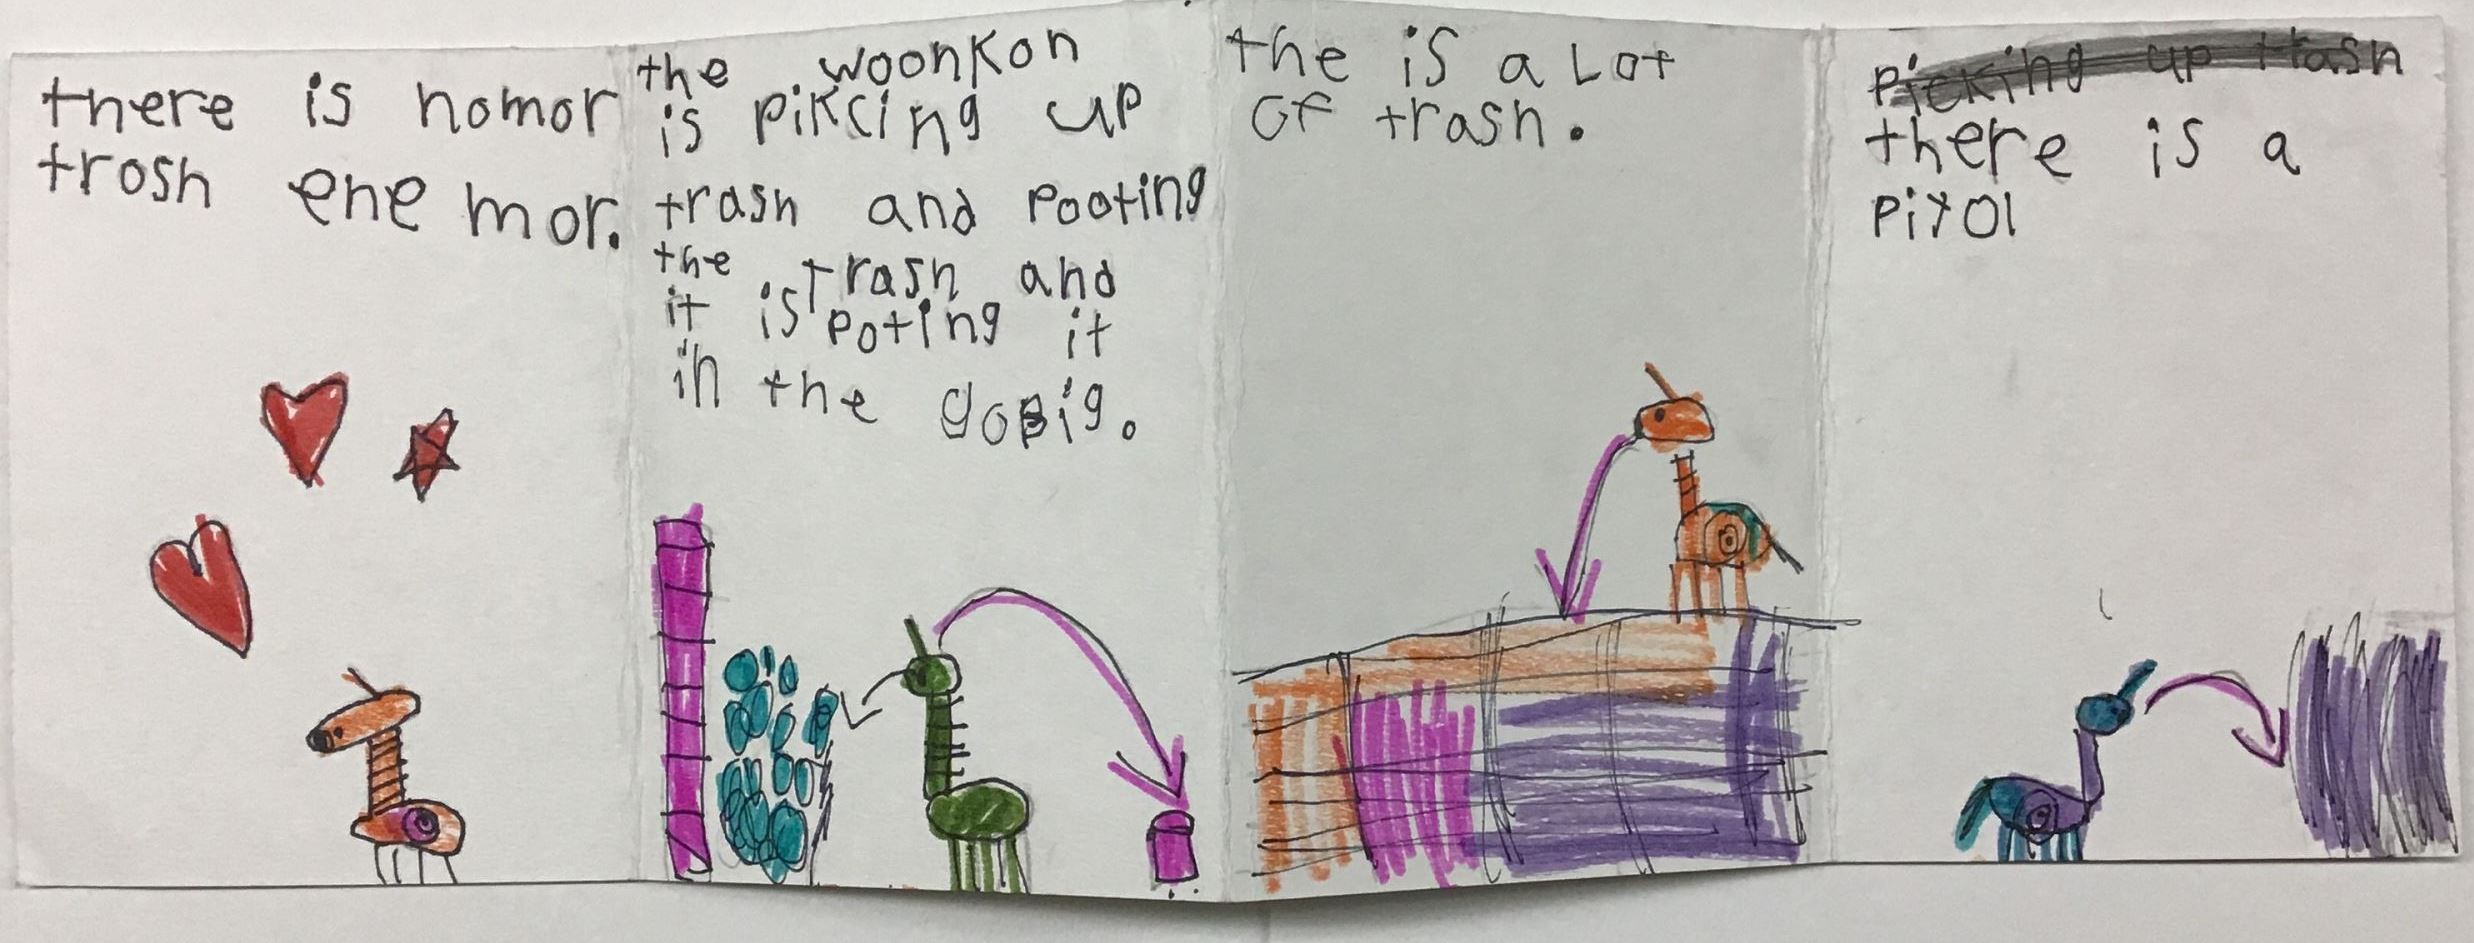 there is nomor
trosh ene mor.
the woonkon
is pikcing up
trash and pooting
the trash and
it is poting it
in the gobig.
the is a Lot
of trash.
picking up trash
there is a